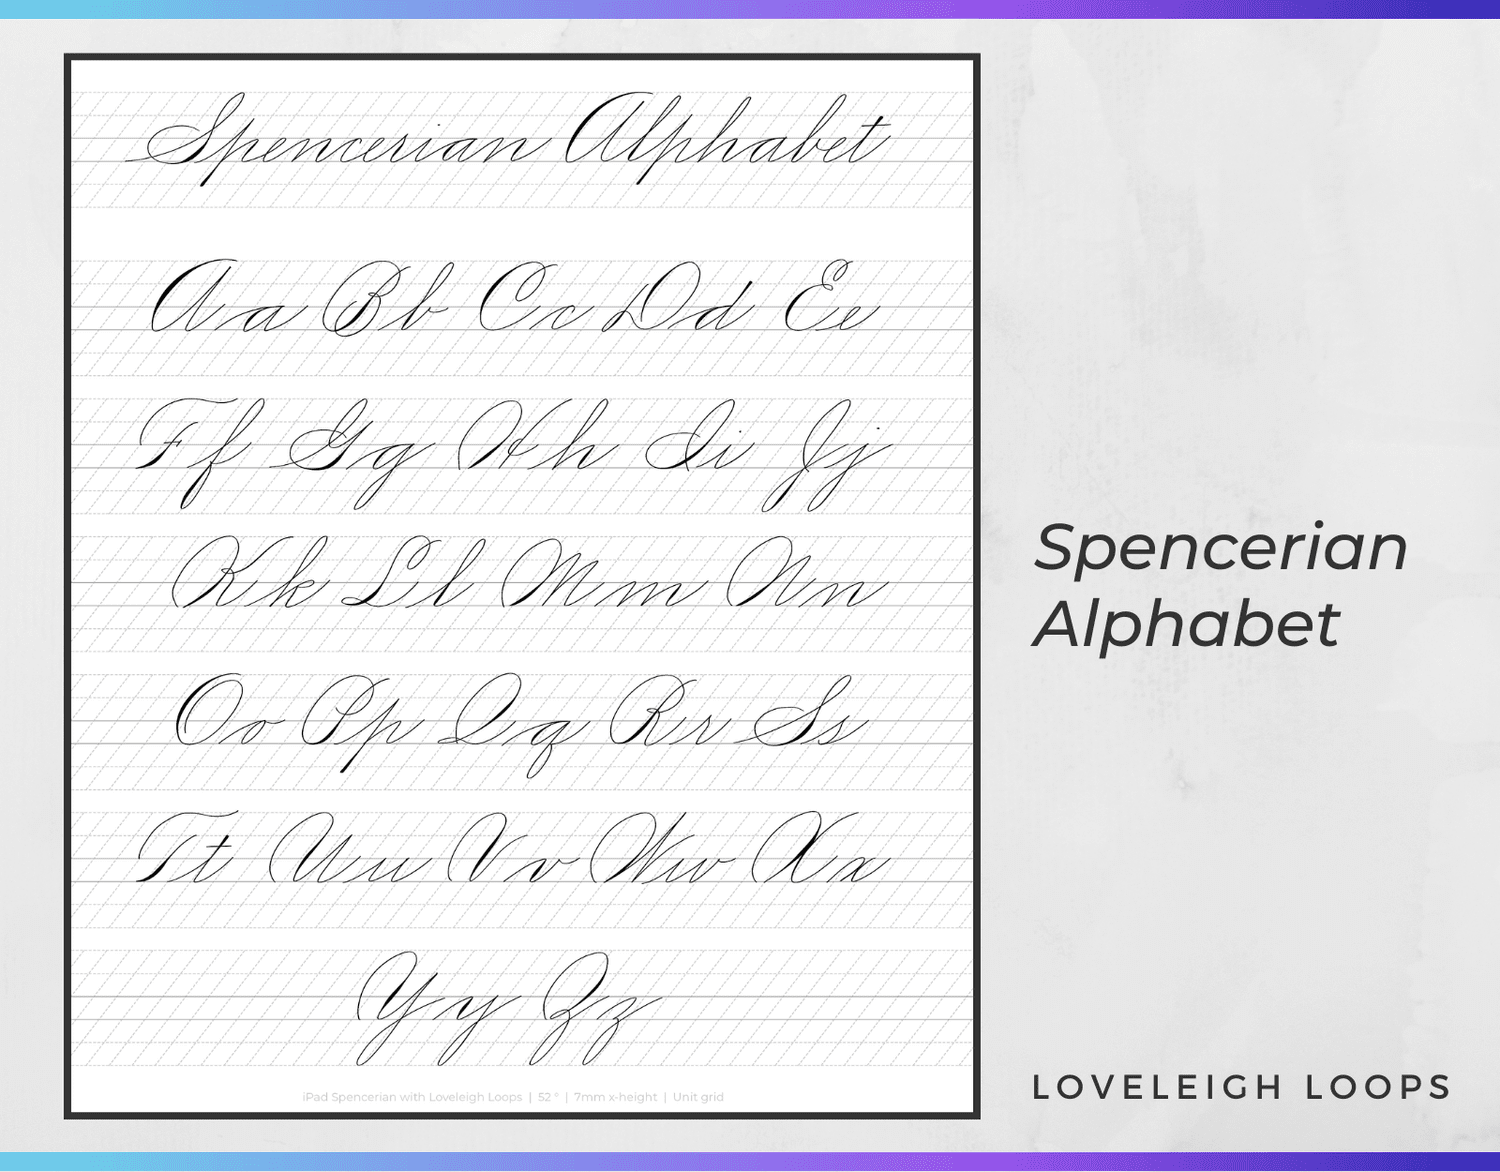 Spencerian Alphabet
Aa Bb Cc Dd Ee
Ff Gg Hh Ii Jj
Kk Ll Mm Nn
Oo Pp Qq Rr Ss
Tt Uu Vv Ww Xx
Yy Zz
iPad Spencerian with Loveleigh Loops | 52° | 7mm x-height | Unit grid
Spencerian
Alphabet
LOVELEIGH LOOPS